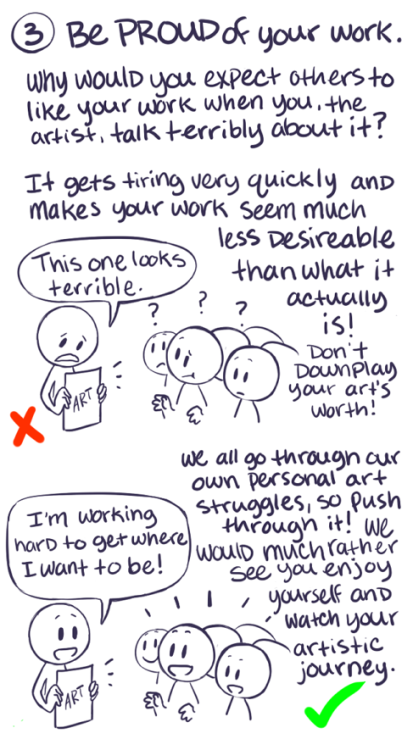 3 Be PROUD of your work.
Why would you expect others to
like your work when you, the
artist, talk terribly about it?
It gets tiring very quickly and
makes your work seem much
less Desireable
than what it
actually
is!
Don't
Downplay
your art's
worth!
This one looks
terrible.
? ? ?
ART
We all go through our
own personal art
struggles, so push
through it! We
would much rather
see you enjoy
yourself and
watch your
artistic
journey.
I'm working
hard to get where
I want to be!
ART